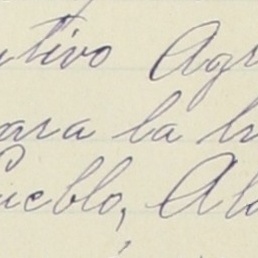 tivo Agr
ara la h
ueblo, Al